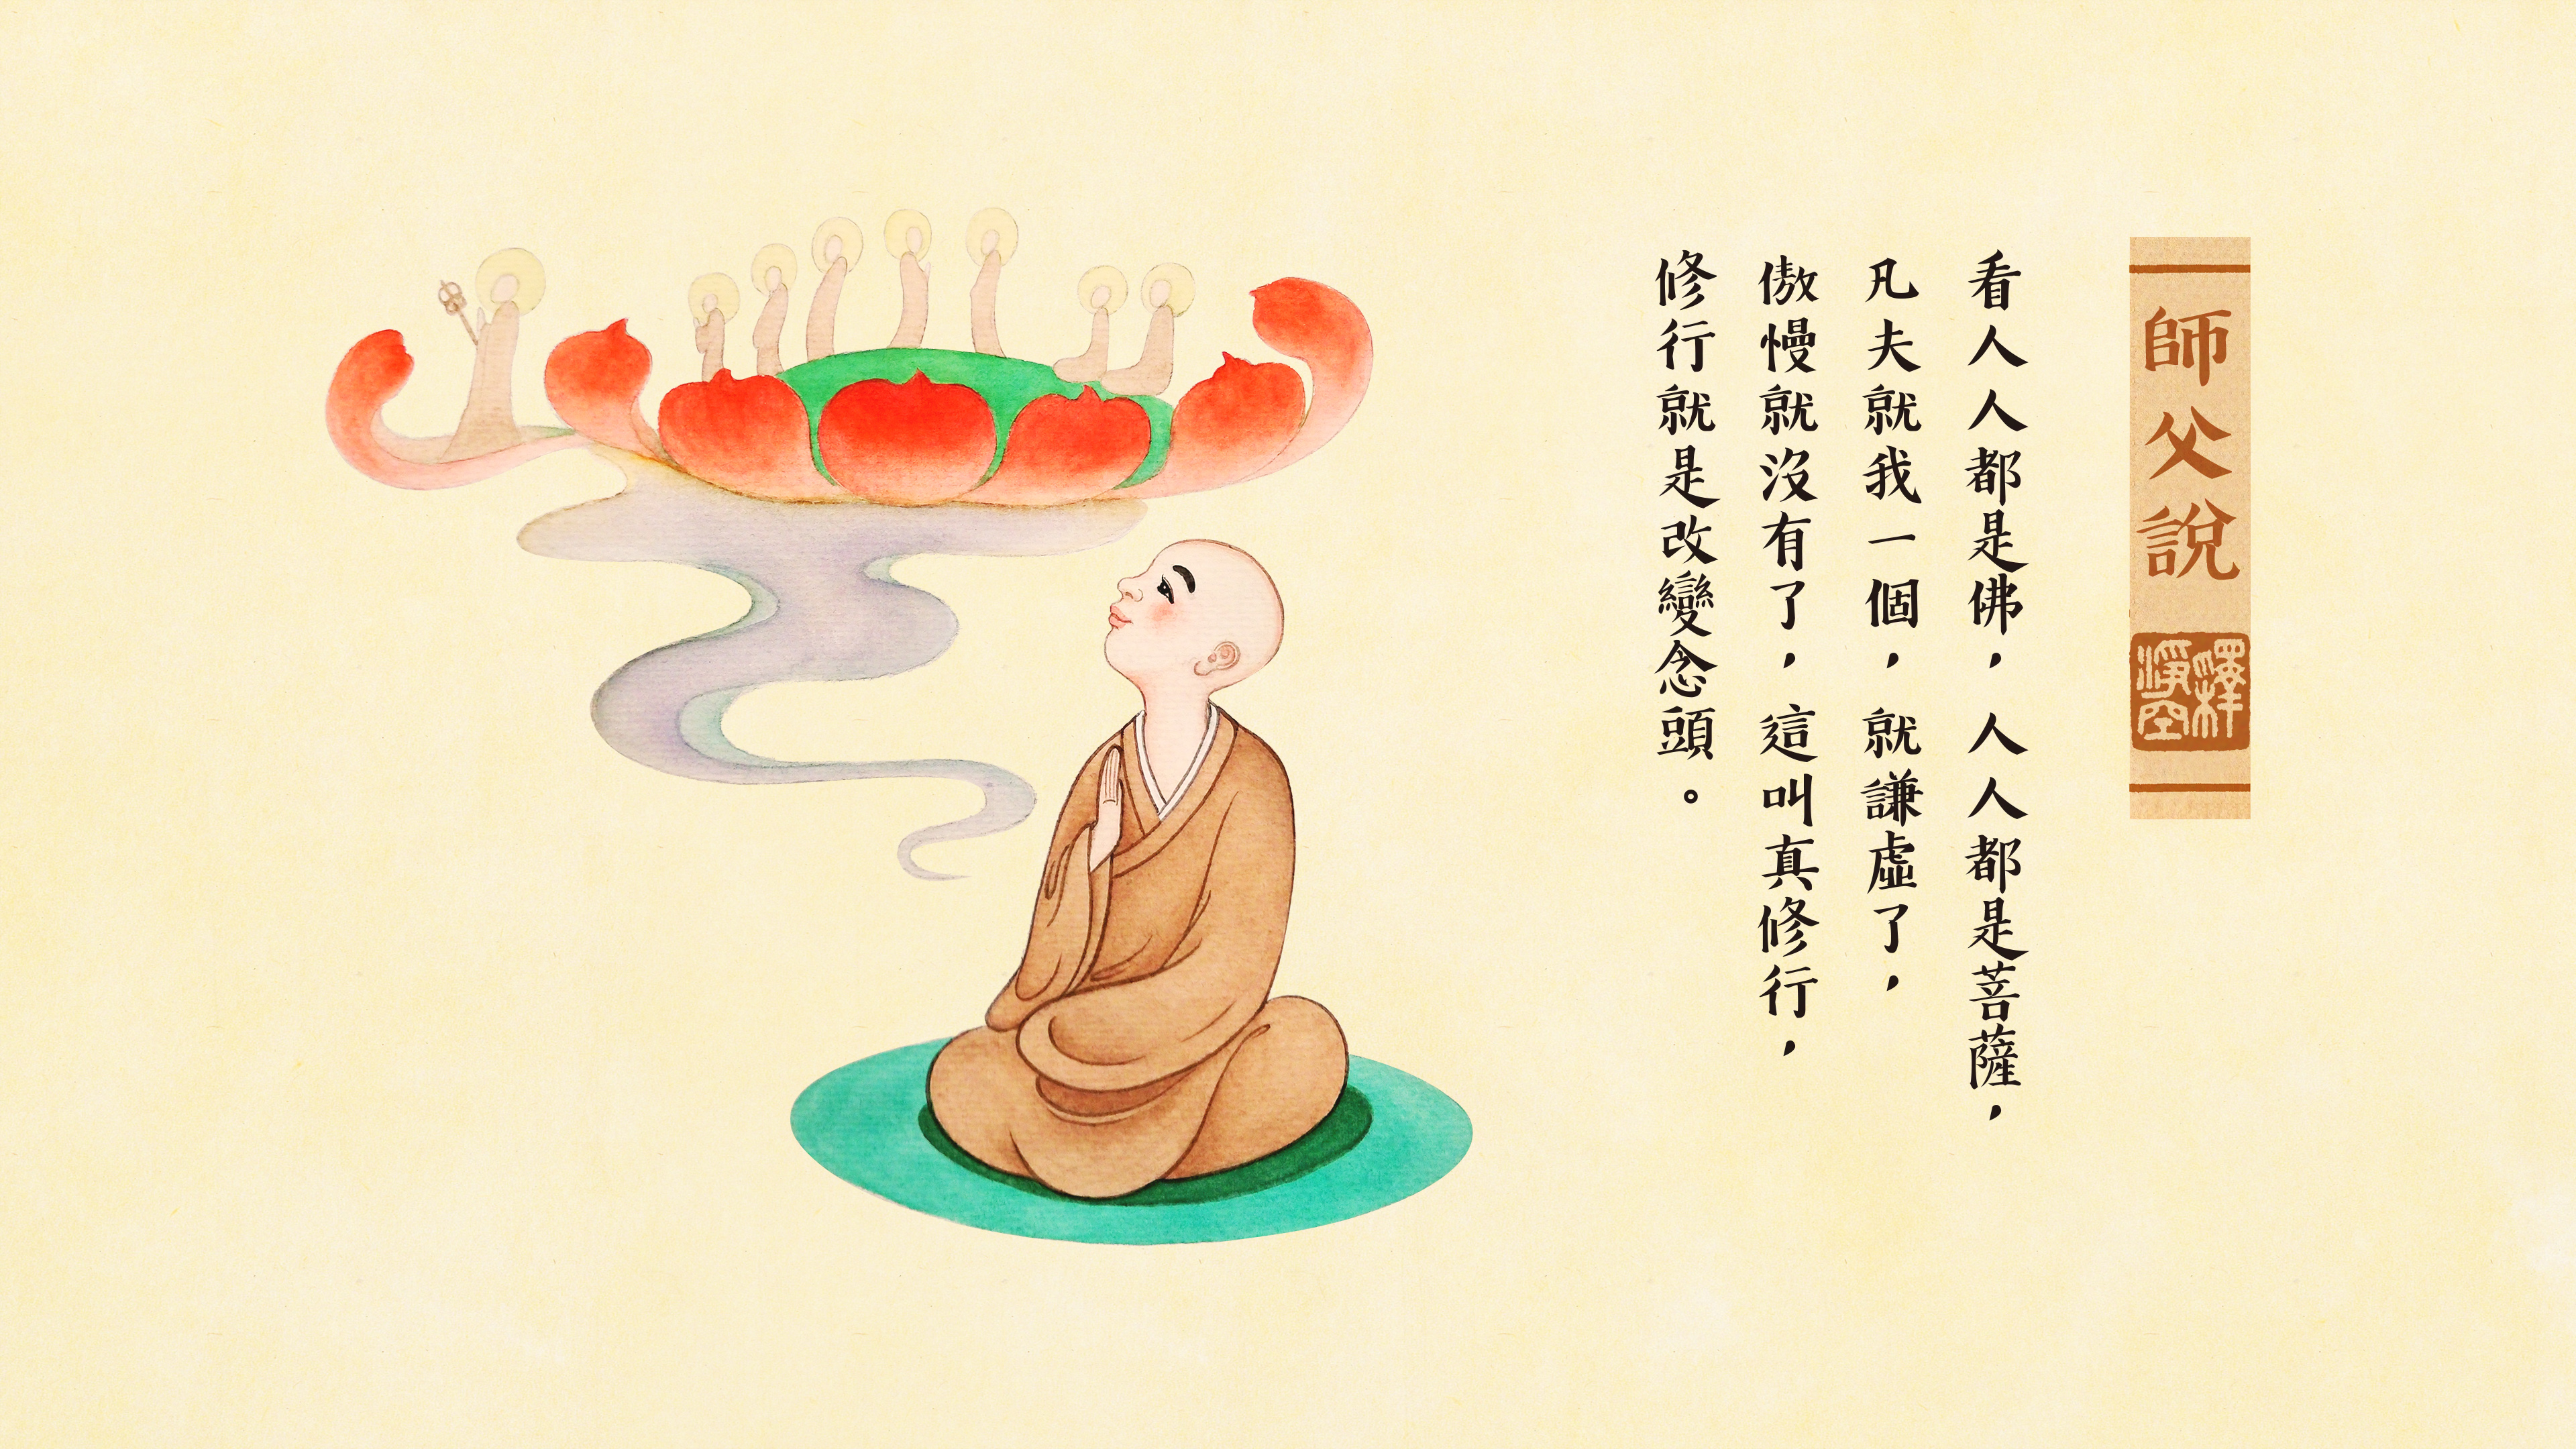 師父說
釋淨空
看人人都是佛，人人都是菩薩，
凡夫就我一個，就謙虛了，
傲慢就沒有了，這叫真修行，
修行就是改變念頭。